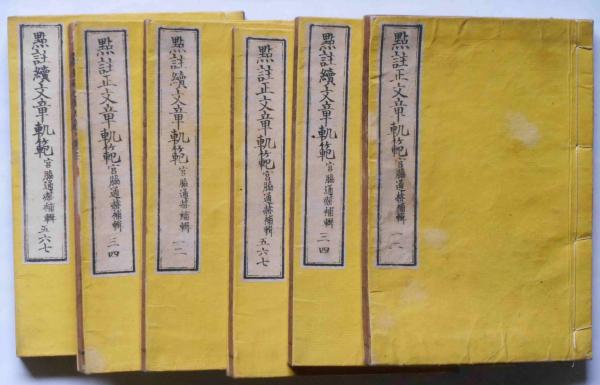 點註正文章軌範 宮脇通赫補輯 一二
點註續文章軌範 宮脇通赫補輯 三四
點註正文章軌範 宮脇通赫補輯 五六七
點註續文章軌範 宮脇通赫補輯 一二
點註正文章軌範 宮脇通赫補輯 三四
點註續文章軌範 宮脇通赫補輯 五六七